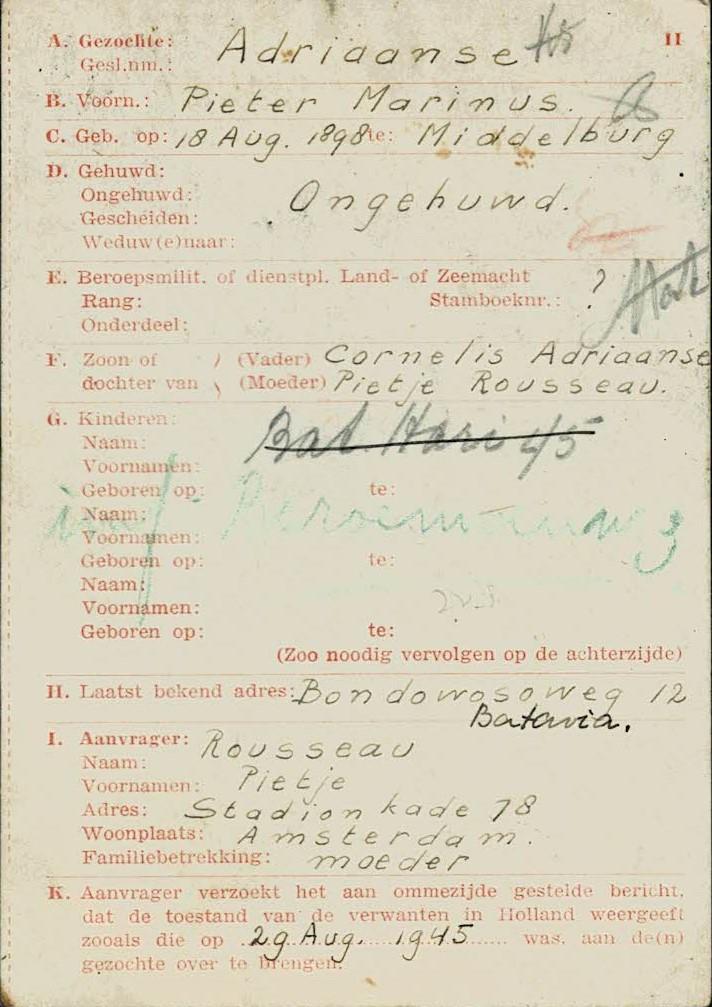 A. Gezochte: II
Gesl.nm.: Adriaanse
B. Voorn.: Pieter Marinus.
C. Geb. op: 18 Aug. 1898 te: Middelburg
D. Gehuwd:
Ongehuwd: Ongehuwd.
Gescheiden:
Weduw(e)naar:
E. Beroepsmilit. of dienstpl. Land- of Zeemacht ?
Rang: Stamboeknr.:
Onderdeel:
F. Zoon of (Vader) Cornelis Adriaanse
dochter van (Moeder) Pietje Rousseau.
G. Kinderen:
Naam: Bat. Hari 45
Voornamen:
Geboren op: te:
Naam:
Voornamen:
Geboren op: te:
Naam:
Voornamen:
Geboren op: te:
(Zoo noodig vervolgen op de achterzijde)
H. Laatst bekend adres: Bondowosoweg 12
Batavia.
I. Aanvrager:
Naam: Rousseau
Voornamen: Pietje
Adres: Stadionkade 78
Woonplaats: Amsterdam.
Familiebetrekking: moeder
K. Aanvrager verzoekt het aan ommezijde gestelde bericht,
dat de toestand van de verwanten in Holland weergeeft
zooals die op 29 Aug. 1945 was, aan de(n)
gezochte over te brengen.